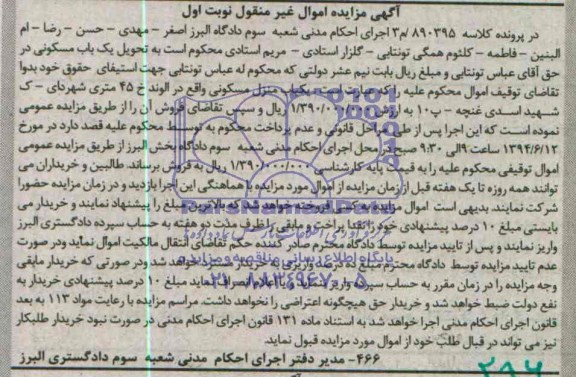 آگهی مزایده اموال غیر منقول نوبت اول
در پرونده کلاسه ۸۹۰۳۹۵ /م۳ اجرای احکام مدنی شعبه سوم دادگاه البرز اصغر - مهدی - حسن - رضا - ام
البنین - فاطمه - کلثوم همگی تونتابی - گلزار استادی - مریم استادی محکوم است به تحویل یک باب مسکونی در
حق آقای عباس تونتابی و مبلغ ریال بابت نیم عشر دولتی که محکوم له عباس تونتابی جهت استیفای حقوق خود بدوا
تقاضای توقیف اموال محکوم علیه را که عبارت است یکباب منزل مسکونی واقع در الوند خ ۴۵ متری شهردای - ک
شهید اسدی غنچه - پ۱۰ به ارزش ۱/۳۹۰/۰۰۰/۰۰۰ ریال و سپس تقاضای فروش آن را از طریق مزایده عمومی
نموده است که این اجرا پس از طی مراحل قانونی و عدم پرداخت محکوم به توسط محکوم علیه قصد دارد در مورخ
۱۳۹۴/۶/۱۲ ساعت ۹الی ۹.۳۰ صبح در محل اجرای احکام مدنی شعبه سوم دادگاه بخش البرز از طریق مزایده عمومی
اموال توقیفی محکوم علیه را به قیمت پایه کارشناسی ۱/۳۹۰/۰۰۰/۰۰۰ ریال به فروش برساند. طالبین و خریداران می
توانند همه روزه تا یک هفته قبل از زمان مزایده از اموال مورد مزایده با هماهنگی این اجرا بازدید و در زمان مزایده حضورا
شرکت نمایند. بدیهی است اموال مزایده به کسی فروخته خواهد شد که بالاترین مبلغ را پیشنهاد نمایند و خریدار می
بایستی مبلغ ۱۰ درصد پیشنهادی خود را نقدا پرداخت و مابقی را ظرف مدت دو هفته به حساب سپرده دادگستری البرز
واریز نمایند و پس از تایید مزایده توسط دادگاه محترم صادر کننده حکم تقاضای انتقال مالکیت اموال نماید ودر صورت
عدم تایید مزایده توسط دادگاه محترم مبلغ ده درصد واریزی به خریدار مسترد خواهد شد ودر صورتی که خریدار مابقی
وجه مزایده را در زمان مقرر به حساب سپرده واریز ننماید و یا اعلام انصراف نماید مبلغ ۱۰ درصد پیشنهادی خریدار به
نفع دولت ضبط خواهد شد و خریدار حق هیچگونه اعتراضی را نخواهد داشت. مراسم مزایده با رعایت مواد ۱۱۳ به بعد
قانون اجرای احکام مدنی اجرا خواهد شد به استناد ماده ۱۳۱ قانون اجرای احکام مدنی در صورت نبود خریدار طلبکار
نیز می تواند در قبال طلب خود از اموال مورد مزایده قبول نماید.
۴۶۶- مدیر دفتر اجرای احکام مدنی شعبه سوم دادگستری البرز
ParsNamadData
پایگاه اطلاع رسانی مناقصه و مزایده
۰۲۱-۸۸۳۴۹۶۷۰-۵